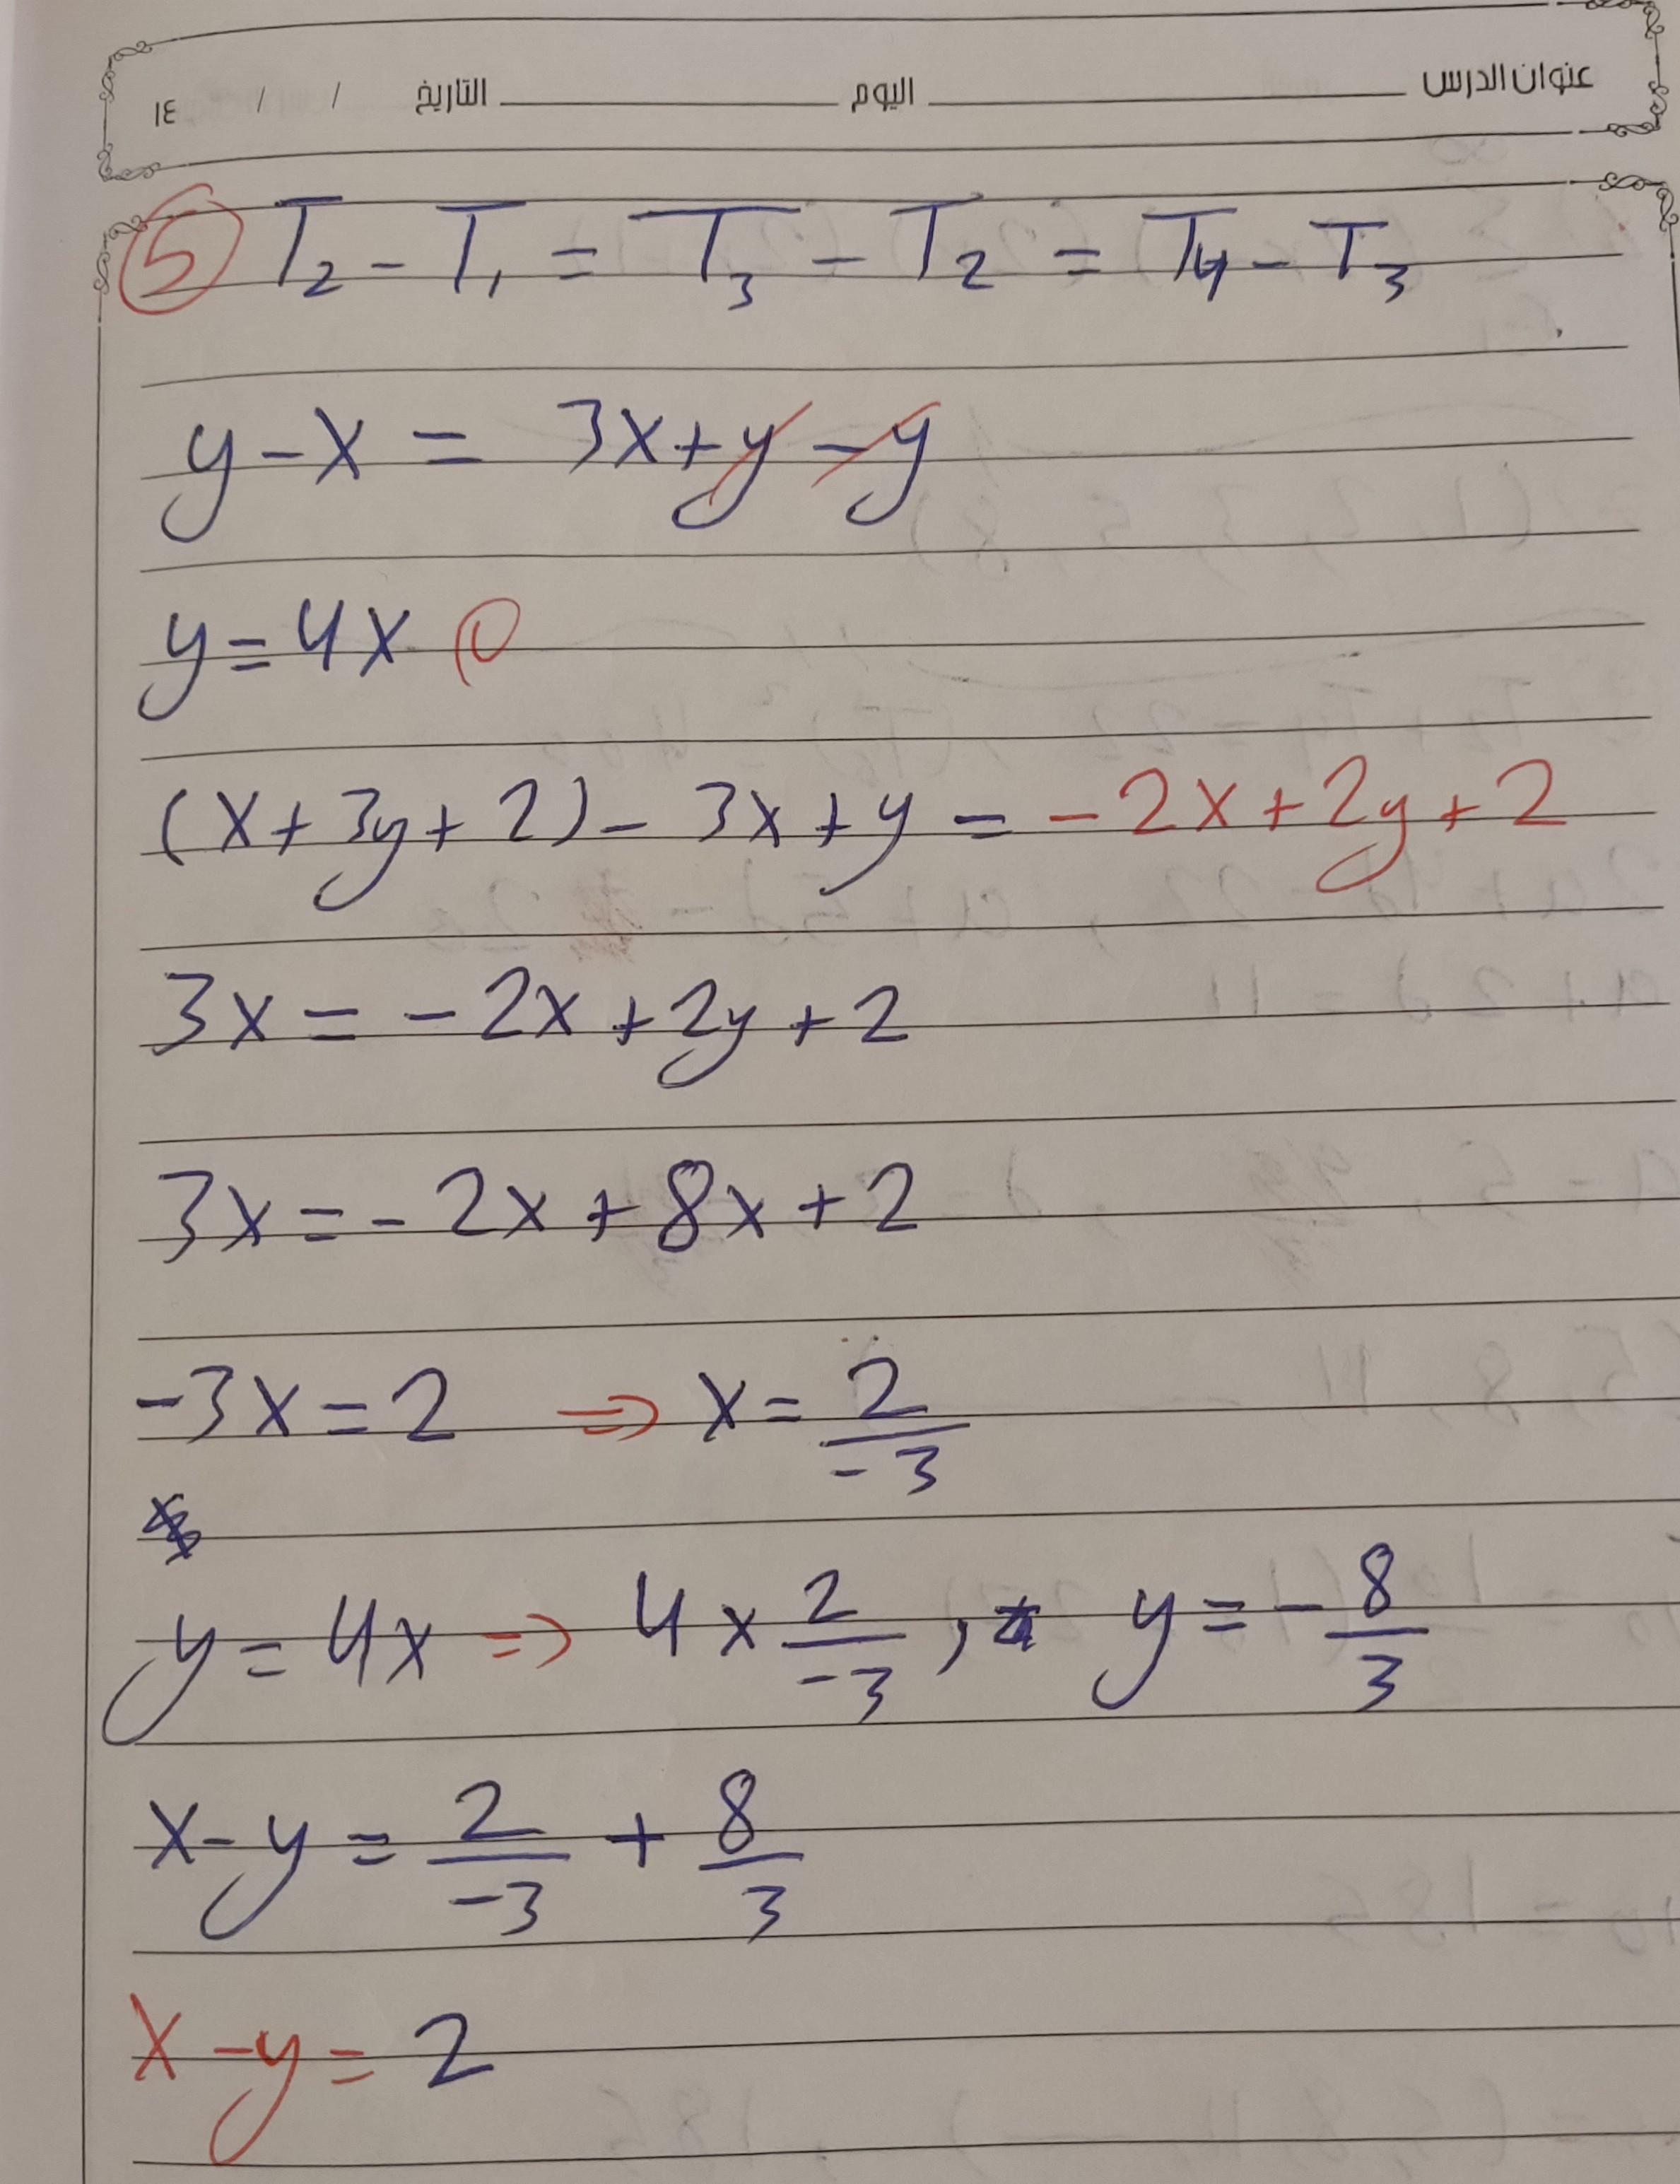 عنوان الدرس اليوم التاريخ / / ١٤
⑤ T₂ - T₁ = T₃ - T₂ = T₄ - T₃
y - x = 3x + y - y
y = 4x ①
(x + 3y + 2) - 3x + y = -2x + 2y + 2
3x = -2x + 2y + 2
3x = -2x + 8x + 2
-3x = 2 => x = 2/-3
y = 4x => 4 × 2/-3 , y = -8/3
x - y = 2/-3 + 8/3
x - y = 2